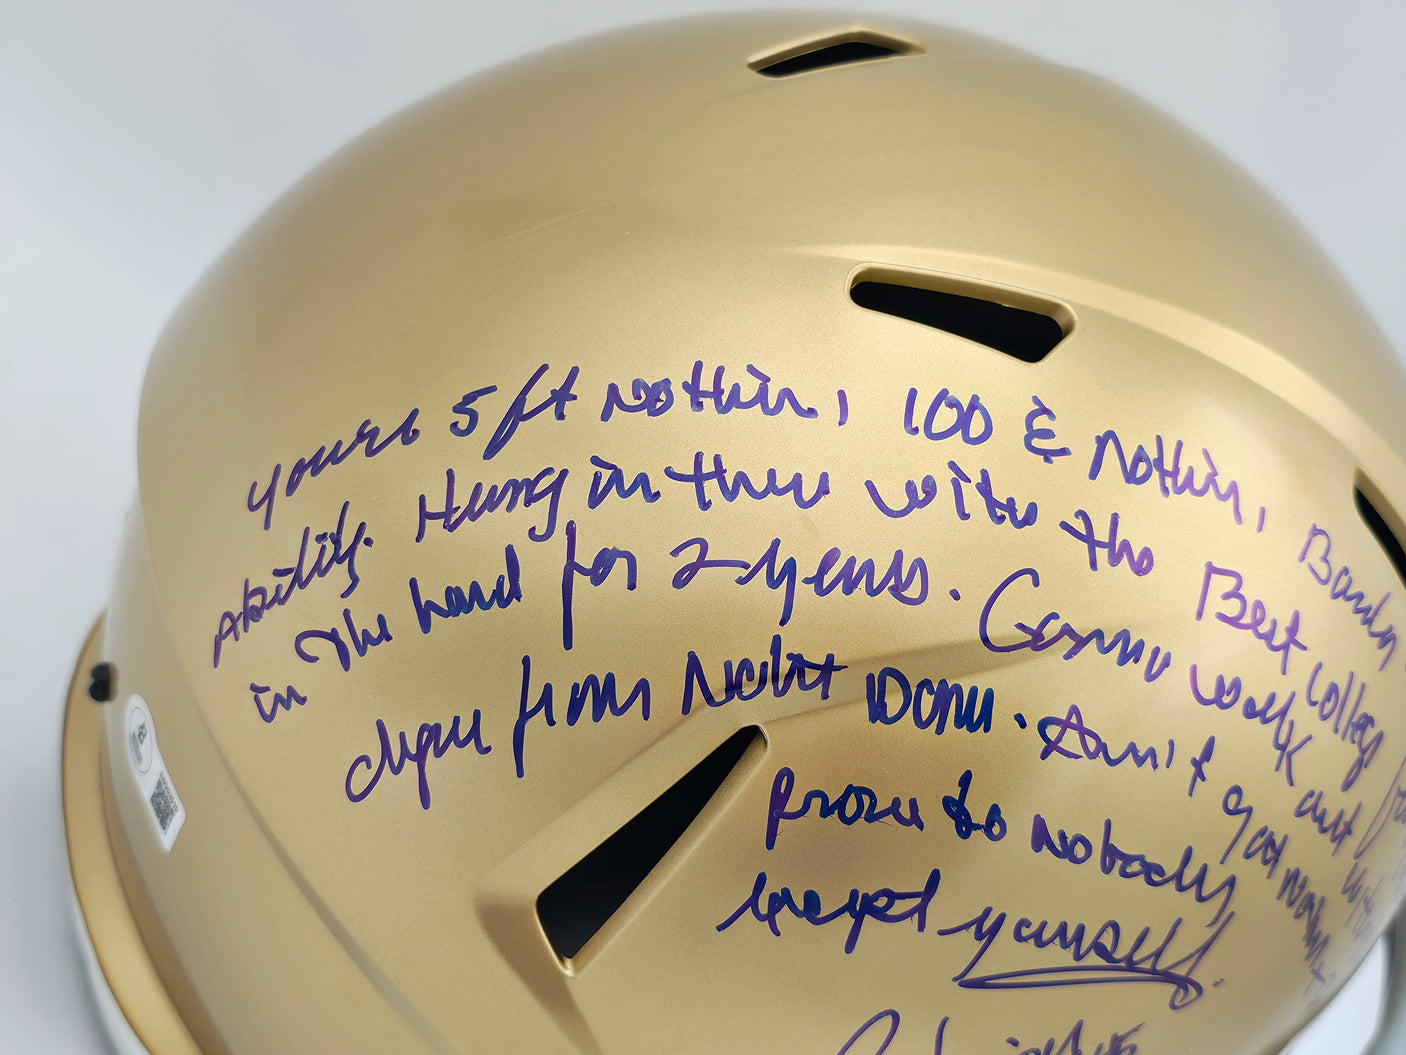 your 5 ft nothin, 100 & nothin, Barely
Ability. Hung in there with the Best College
in the land for 2 years. Gonna walk out with
degree from Notre Dame. And if you
prove to nobody
except yourself.